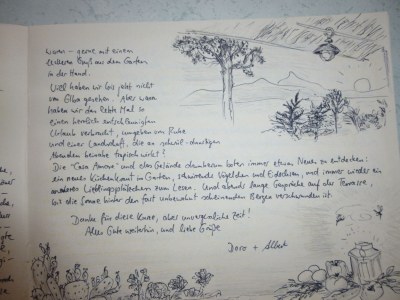 waren – gerne mit einem
leckeren aus dem Garten
in der Hand.
Viel haben wir bis jetzt nicht
von Elba gesehen. Aber wann
haben wir das letzte Mal so
einen herrlich entschleunigten
Urlaub verbracht, umgeben von Ruhe
und einer Landschaft, die an schwül-dunstigen
Abenden beinahe tropisch wirkt?
Die "Casa Amore" und das Gelände drumherum laden immer etwas Neues zu entdecken:
ein neues Küchenkraut im Garten, Vögelchen und Eidechsen, und immer wieder ein
anderes Lieblingsplätzchen zum Lesen. Und abends lange Gespräche auf der Terrasse,
bis die Sonne hinter den fast unbewohnt scheinenden Bergen verschwunden ist.
Danke für diese kurze, aber unvergessliche Zeit!
Alles Gute weiterhin, und liebe Grüße
Doro + Albert